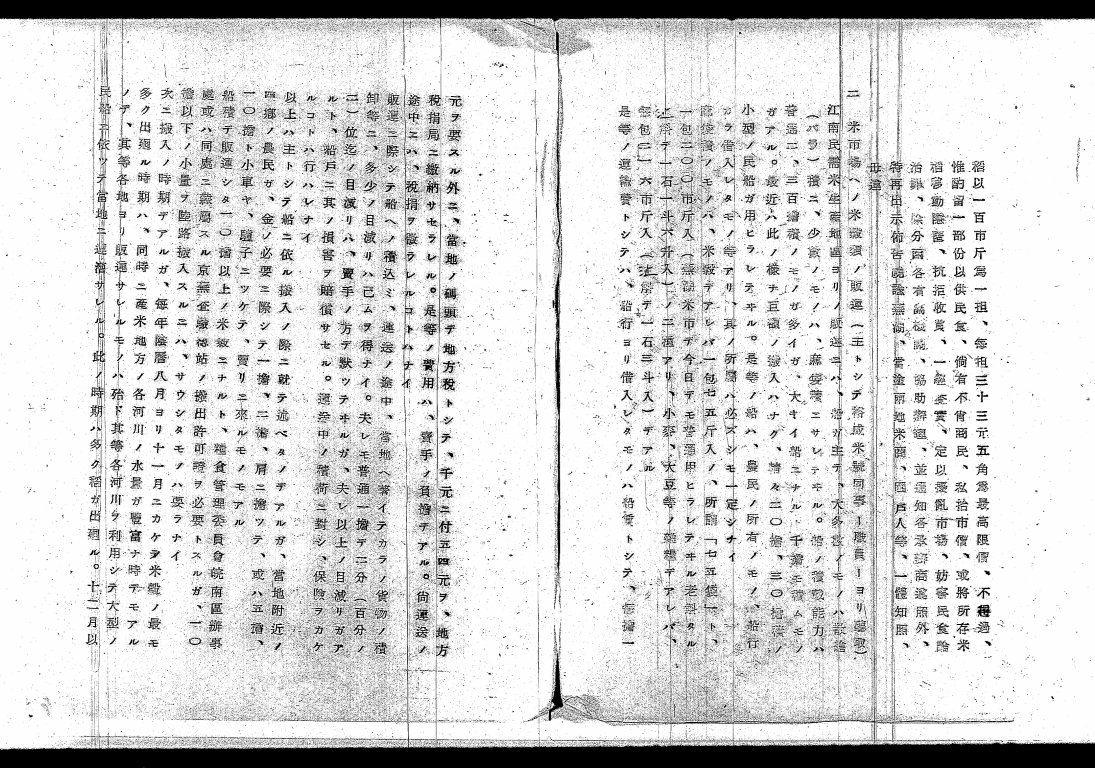 稻以一百市斤爲一祖、每祖三十三元五角爲最高限價、不得過、
惟酌留一部份以供民食、倘有不肖商民、私抬市價、或將所存米
稻移動隱匿、抗拒收買、一經查實、定以擾亂市場、妨害民食論
治罪、除分函各有關機關、協助辦理、並通知各承辦商遵照外、
特再出示佈告商民、當塗兩地米商、囤戶人等、一體知照、
毋違
二 米市場ヘノ米穀類ノ販運(主トシテ裕成米號同事ー職員ーヨリ聽取)
江南民需米生產地區ヨリノ販運ニハ、船ガ主デ、大多數ノモノハ散艙
(バラ)積ニ、少數ノモノハ、麻袋積ニサレテヰル。船ノ積載能力ハ
普通二、三百擔積ノモノガ多イガ、大キイ船ニナルト千擔モ積ムモノ
ガアル。最近ハ此ノ樣ナ巨額ノ搬入ハナク、精々二〇擔、三〇擔積ノ
小型ノ民船ガ用ヒラレテヰル。是等ノ船ハ、農民ノ所有ノモノ、船行
カラ借入レタモノ等アリ、其ノ所屬ハ必ズシモ一定シナイ
麻袋積ノモノハ、米穀デアレバ一包七五斤入ノ、所謂「七五袋」ト、
一包二〇〇市斤入(蕪湖米市デ今日デモ普通用ヒラレテヰル老斛タル
斛デ一石二斗六升入)ノ二種アリ、小麥、大豆等ノ雜糧デアレバ、
每包二一六市斤入(斛デ一石三斗入)デアル
是等ノ運輸費トシテハ、船行ヨリ借入レタモノハ船賃トシテ、每擔一
元ヲ要スル外ニ、當地ノ碼頭デ地方稅トシテ、千元ニ付五四元ヲ、地方
稅捐局ニ繳納サセラレル。是等ノ費用ハ、賣手ノ負擔デアル。尙運送ノ
途中ニハ、稅捐ヲ徵ラレルコトハナイ
販運ニ際シテ船ヘノ積込ミ、運送ノ途中、當地ヘ著イテカラノ貨物ノ積
卸等ニ、多少ノ目減リハ已ムヲ得ナイ。夫レモ普通一擔デ二分(百分ノ
二)位迄ノ目減リハ、賣手ノ方デ默ツテヰルガ、夫レ以上ノ目減リガア
ルト、船戶ニ其ノ損害ヲ賠償サセル。運送中ノ積荷ニ對シ、保險ヲカケ
ルコトハ行ハレナイ
以上ハ主トシテ船ニ依ル搬入ノ際ニ就テ述ベタノデアルガ、當地附近ノ
四鄕ノ農民ガ、金ノ必要ニ際シテ一擔、二擔、肩ニ擔ツテ、或ハ五擔、
一〇擔ト小車ヤ、驢子ニツケテ、賣リニ來ルモノモアル
船積デ販運シタ一〇擔以上ノ米穀ニナルト、糧食管理委員會皖南區辦事
處或ハ同處ニ隸屬スル京蕪查驗總站ノ搬出許可證ヲ必要トスルガ、一〇
擔以下ノ小量ヲ陸路搬入スルニハ、サウシタモノハ要ラナイ
次ニ搬入ノ時期デアルガ、每年陰曆八月ヨリ十一月ニカケテ米穀ノ最モ
多ク出廻ル時期ハ、同時ニ產米地方ノ各河川ノ水量ガ豐富ナ時デモアル
ノデ、其等各地ヨリ販運サレルモノハ殆ド其等各河川ヲ利用シテ大型ノ
民船ニ依ツテ當地ニ運漕サレル。此ノ時期ハ多ク稻ガ出廻ル。十二月以